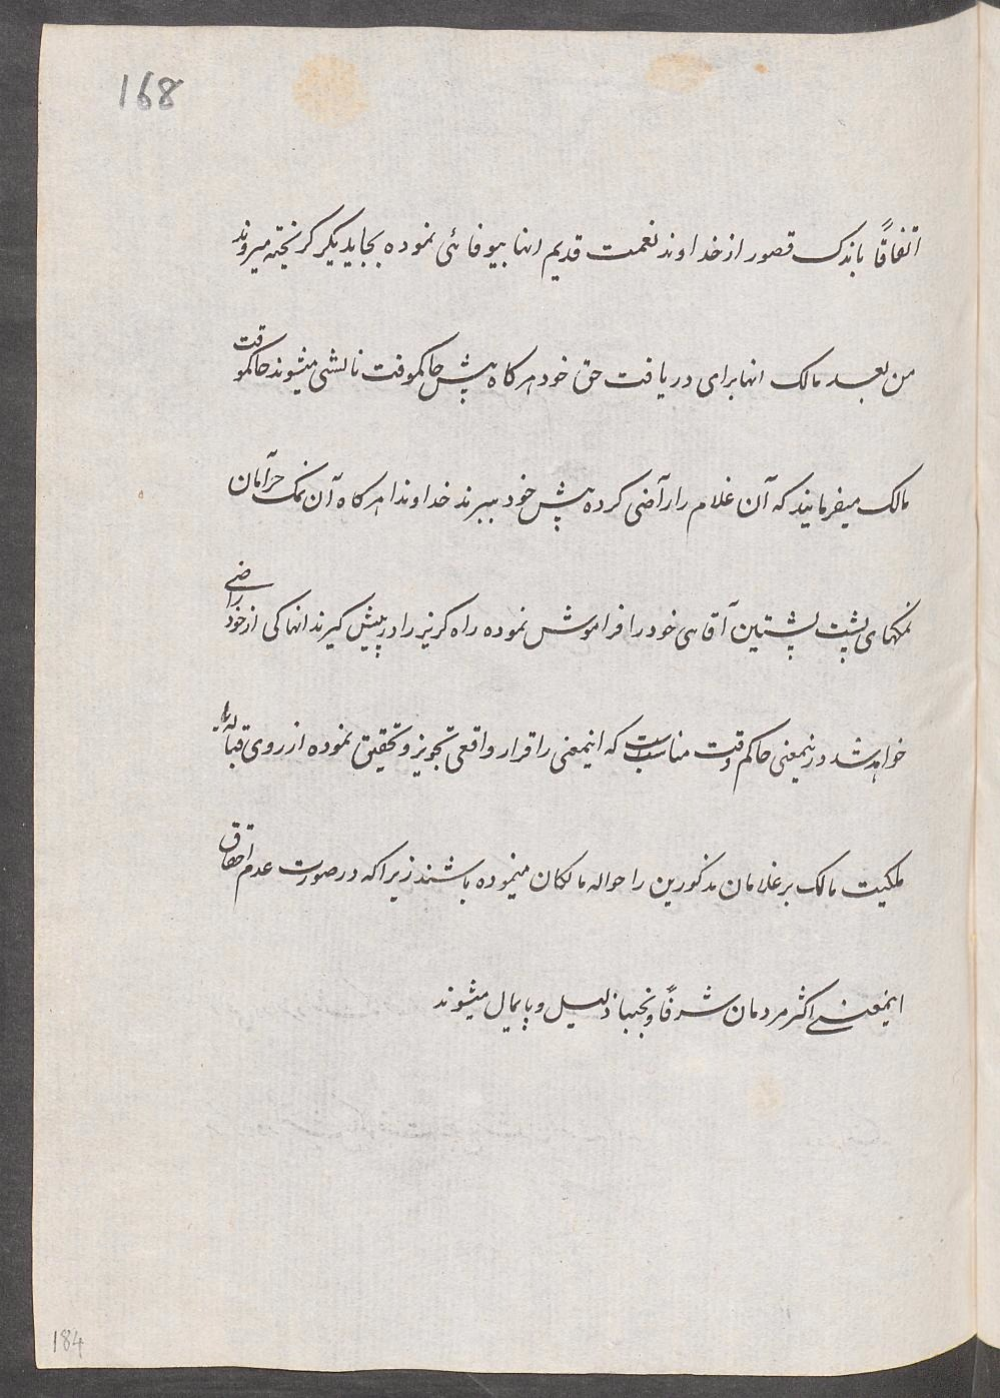 168
اتفاقاً باندک قصور از خداوند نعمت قدیم انها بیوفائی نموده بجاید یکر کریخته میروند
من بعد مالک انها برای دریافت حق خود هرکاه پیش حاکموقت نالشی میشوند حاکموقت
مالک میفرمانید که آن غلام را رآضی کرده پیش خود ببرند خداوندا هرکاه آن نمک حرآمان
نمکهای پشت پشتین آقاهی خود را فراموش نموده راه کریز را در پیش کیرند انها کی از خود راضی
خواهد شد درینمعنی حاکم وقت مناسبست که اینمعنی را قرار واقعی تجویز و تحقیق نموده از روی قباله
ملکیت مالک بر غلامان مذکورین را حواله مالکان مینموده باشند زیراکه در صورت عدم احقاق
اینمعنی اکثر مردمان شرفا و نجبا ذلیل و پایمال میشوند
184